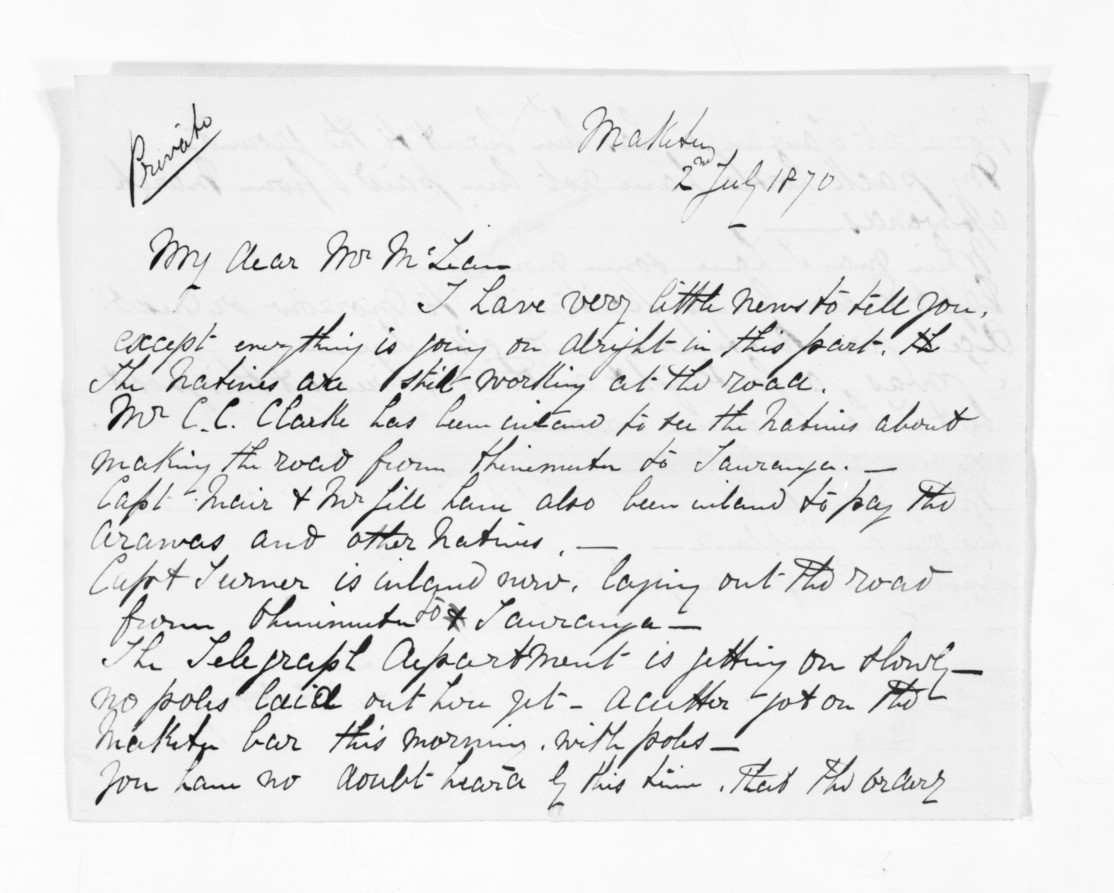 Private
Maketu
2nd July 1870
My dear Mr McLean
I have very little news to tell you,
except everything is going on alright in this part. th
The Natives are still working at the road.
Mr C.C. Clarke has been inland to see the Natives about
making the road from Ohinemutu to Tauranga. —
Capt Mair & Mr Gill have also been inland to pay the
Arawas and other Natives. —
Capt Turner is inland now, laying out the road
from Ohinemutu to Tauranga —
The Telegraph department is getting on slowly —
no poles laid out here yet - a cutter got on the
Maketu bar this morning with poles —
You have no doubt heard by this time, that the